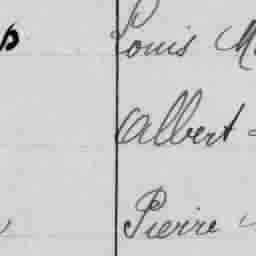 Louis
Albert
Pierre